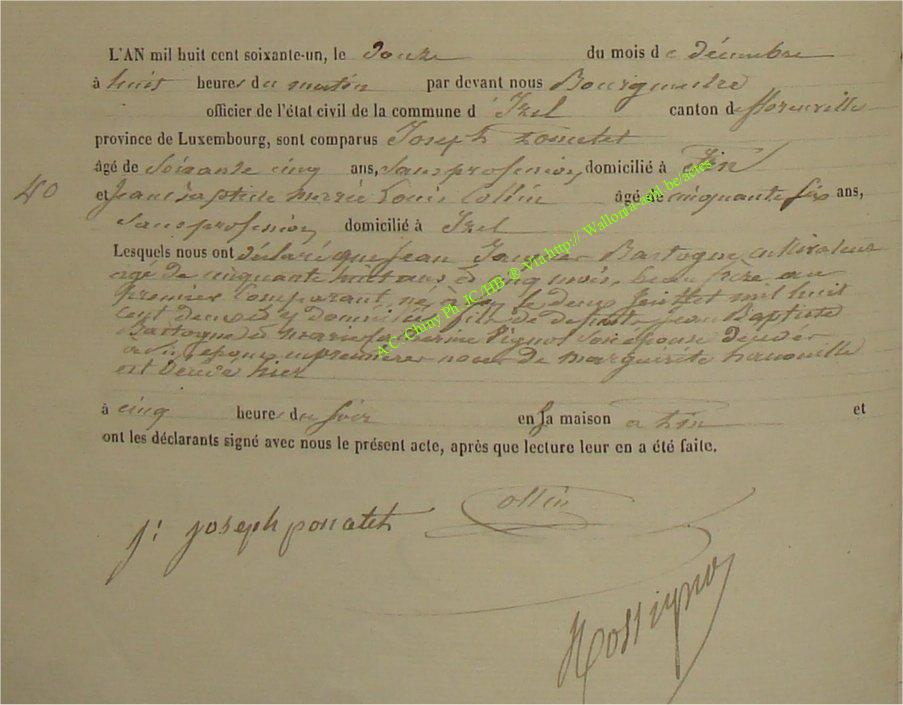 L'AN mil huit cent soixante-un, le douze du mois de décembre
à huit heures du matin par devant nous Bourgmestre
officier de l'état civil de la commune d'Izel canton de florenville
province de Luxembourg, sont comparus Joseph
âgé de soixante cinq ans, sans profession domicilié à
40 et Jean Baptiste Louis Collin âgé de cinquante six ans,
sans profession domicilié à Izel
Lesquels nous ont déclaré que Jean Bastogne cultivateur
agé de cinquante neuf ans cinq mois, beau frère au
premier Comparant, né à le deux juillet mil huit
cent deux y domicilié, fils de jean Baptiste
Bastogne et marie son épouse
époux en premieres noces de Marguerite
est décédé hier
à cinq heures du soir en sa maison a et
ont les déclarants signé avec nous le présent acte, après que lecture leur en a été faite.
j: joseph ponatet
Collin
Rossignon
A.C. Chiny Ph. JC/HB @ Via http:// Wallonia and be/actes